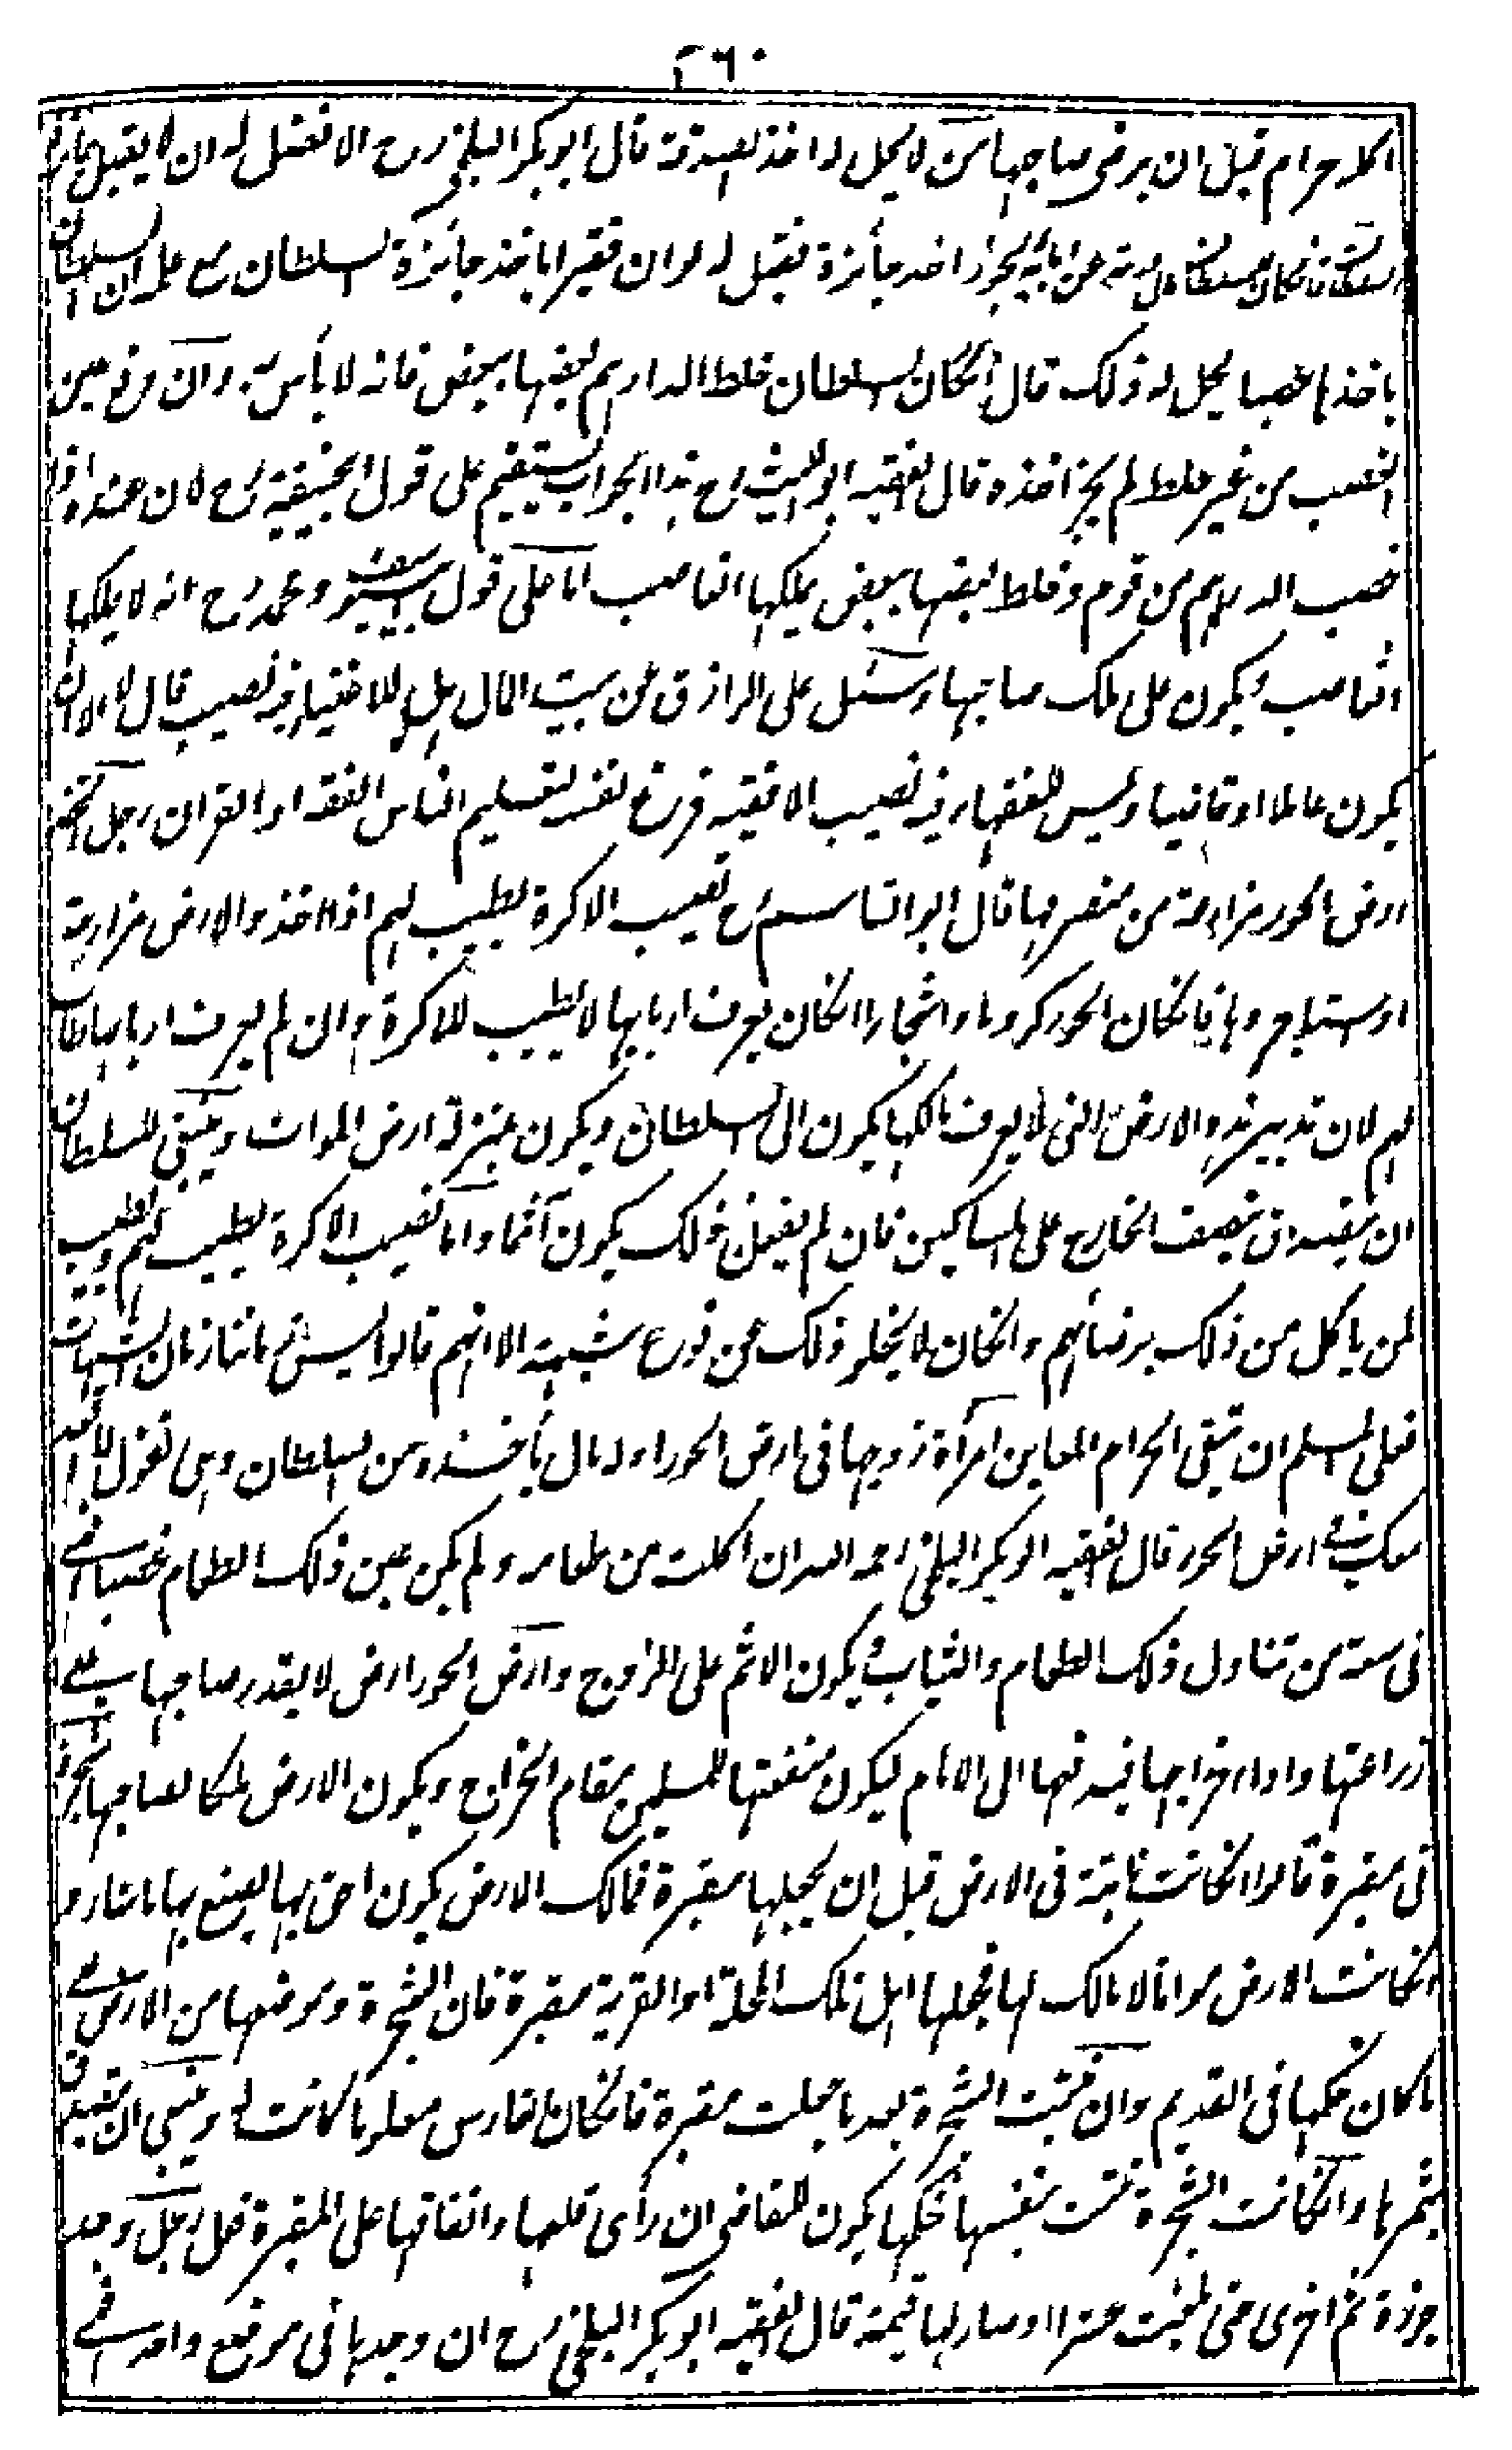 ٢٦٠
اكلا حرام قبل ان يرضى صاحبها من لا يحل له اخذ الصدقة قال ابو بكر البلخى رح الافضل له ان لا يقبل جائزة
السلطان اخذ جائزة فقيل له لو ان فقيرا ياخذ جائزة السلطان مع علمه ان السلطان
ياخذها غصبا يحل له ذلك قال ان كان السلطان خلط الدراهم بعضها ببعض فانه لا بأس به وان دفع عين
الغصب من غير خلط لم يجز اخذه قال الفقيه ابو الليث رح هذا الجواب يستقيم على قول ابيحنيفة رح لان عنده اذا
غصب الدراهم من قوم وخلط بعضها ببعض يملكها الغاصب اما على قول ابى يوسف ومحمد رح انه لا يملكها
الغاصب ويكون على ملك صاحبها وسئل على الرازى عن بيت المال هل للاغنياء فيه نصيب قال لا الا ان
يكون عاملا او قاضيا وليس للفقهاء فيه نصيب الا فقيه فرغ نفسه لتعليم الناس الفقه او القران رجل اخذ
ارض الحور مزارعة من متصرفها قال ابو القاسم رح نصيب الاكرة يطيب لهم اذا اخذوا الارض مزارعة
او استاجروها فان كان الحور كروما واشجارا ان كان يعرف اربابها لا يطيب للاكرة وان لم يعرف اربابها طاب
لهم لان تدبير هذه الارض التى لا يعرف مالكها يكون الى السلطان ويكون بمنزلة ارض الموات وينبغى للسلطان
ان يتصدق بنصف الخارج على المساكين فان لم يفعل ذلك يكون آثما واما نصيب الاكرة يطيب لهم ويطيب
لمن ياكل من ذلك برضائهم وان كان لا يخلو ذلك عن نوع شبهة الا انهم قالوا ليس زماننا زمان الشبهات
فعلى المسلم ان يتقى الحرام المعاين امرأة زوجها فى ارض الحور او له مال يأخذه من السلطان وهى تقول لا اقعد
معك فى ارض الحور قال الفقيه ابو بكر البلخى رحمه الله ان اكلت من طعامه ولم يكن عين ذلك الطعام غصبا فهى
فى سعة من تناول ذلك الطعام والثياب ويكون الاثم على الزوج وارض الحور ارض لا يقدر صاحبها على
زراعتها واداء خراجها فيدفعها الى الامام ليكون منفعتها للمسلمين مقام الخراج ويكون الارض ملكا لصاحبها شجرة
فى مقبرة قالوا ان كانت نابتة فى الارض قبل ان يجعلها مقبرة فمالك الارض يكون احق بها يصنع بها ما شاء و
ان كانت الارض مواتا لا مالك لها فجعلها اهل تلك المحلة او القرية مقبرة فان الشجرة وموضعها من الارض على
ما كان حكمها فى القديم وان نبتت الشجرة بعد ما جعلت مقبرة فان كان الغارس معلوما كانت له وينبغى ان يتصدق
بثمرها وان كانت الشجرة نبتت بنفسها فحكمها يكون للقاضى ان رأى قلعها وانفاقها على المقبرة فعل رجل وجد
جوزة ثم اخرى حتى بلغت عشرا وصار لها قيمة قال الفقيه ابو بكر البلخى رح ان وجدها فى موضع واحد فهى